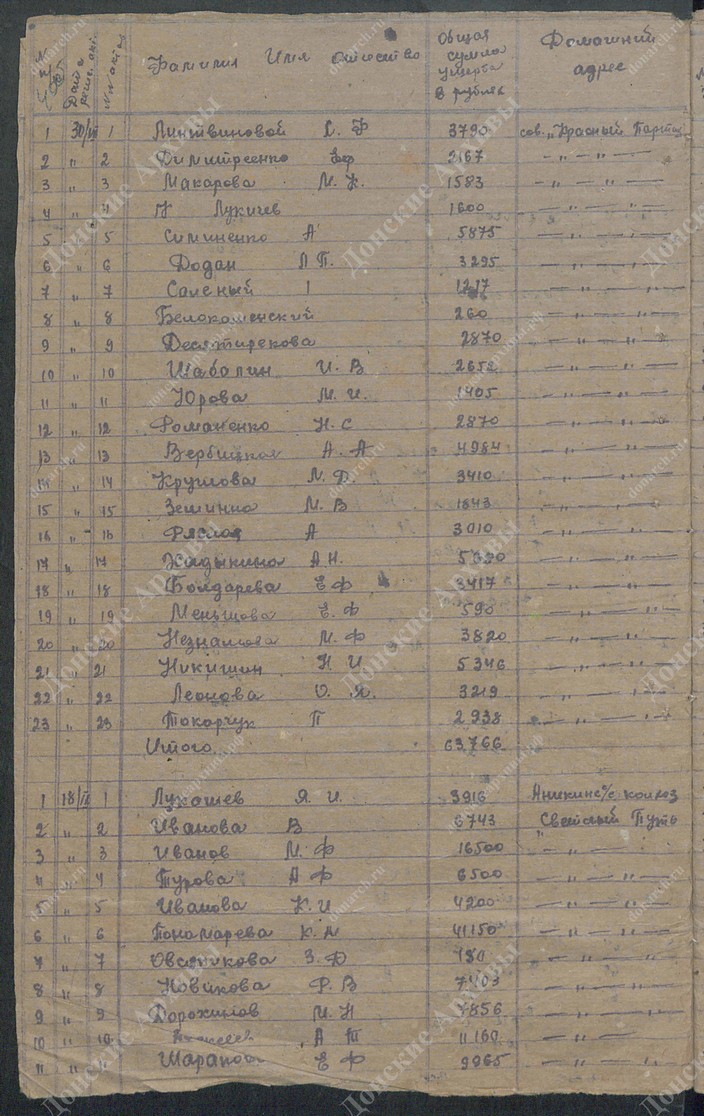 Фамилия Имя отчество
Общая сумма ущерба в рублях
Домашний адрес
1 30/ 1 Линтвиновой С. Ф 3790 сов. „Красный
2 " 2 Димитреенко Еф 2167 — " — " —
3 " 3 Макарова М. К. 1583 — " — " —
4 " 4 Лукичев 1600 — " — " —
5 " 5 Симиненко А 5875 — " — " —
6 " 6 Додан Л П. 3295 — " — " —
7 " 7 Саленый 1217 — " — " —
8 " 8 Белокашенский 260 — " — " —
9 " 9 Десятирекова 2870 — " — " —
10 " 10 Шабалин И. В — " — " —
11 " 11 Юрова М. И. 1405 — " — " —
12 " 12 Романенко Н. С 2870 — " — " —
13 " 13 Вербицкая А. А 4984 — " — " —
14 " 14 Круглова 3410 — " — " —
15 " 15 М. В 1843 — " — " —
16 " 16 А 3010 — " — " —
17 " 17 А Н. — " — " —
18 " 18 Болдарева Е Ф 3417 — " — " —
19 " 19 Меньшова Е. Ф 590 — " — " —
20 " 20 Незнамова М. Ф 3820 — " — " —
21 " 21 Никишин Н И. 5346 — " — " —
22 " 22 Леонова О. Я. 3219 — " — " —
23 " 23 Токарчук П 2938 — " — " —
Итого 63.766
1 18/ 1 Лукашев Я. И. 3916 Аникинс с/с колхоз
2 " 2 Иванова В 6743 Светлый Путь
3 " 3 Иванов М. Ф 16500 — " —
4 " 4 Турова А Ф 6500 — " — " —
5 " 5 Иванова К. И 4200 — " — " —
6 " 6 Пономарева К. А 41150 — " — " —
7 " 7 Овсяникова З. Д — " — " —
8 " 8 Новикова Ф. В — " — " —
9 " 9 Дорохинов М. Н — " — " —
10 " 10 А 11160 — " — " —
11 " Е Ф 9965 — " — " —
Донские Архивы
donarch.ru
донскиеархивы.рф